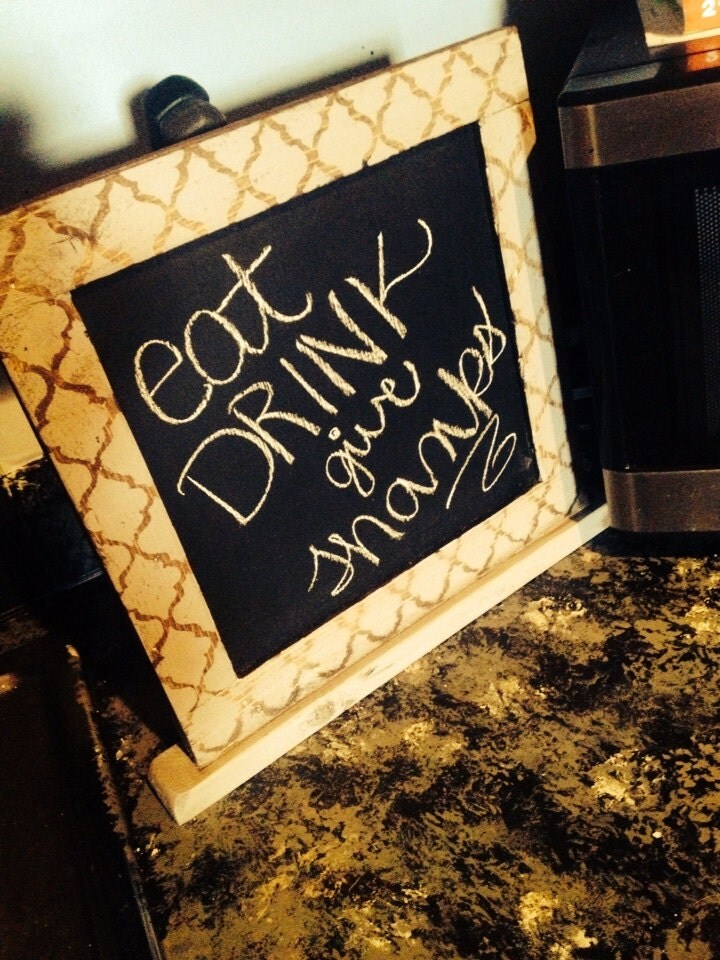 eat
DRINK
give
thanks
2